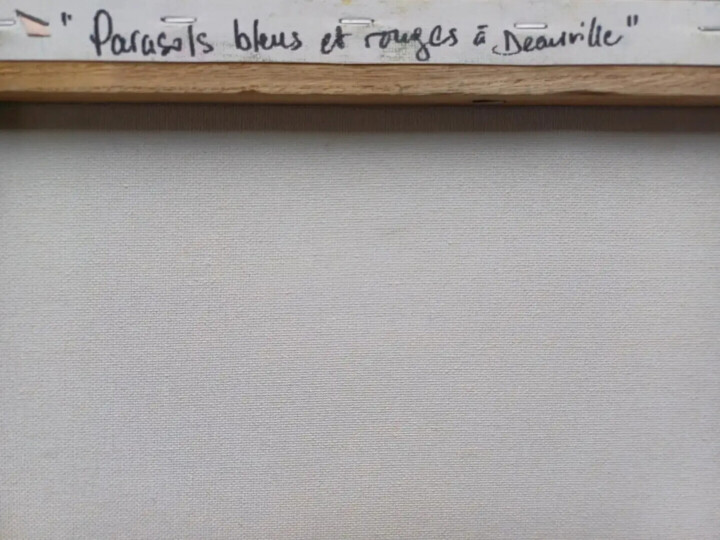 "Parasols bleus et rouges à Deauville"